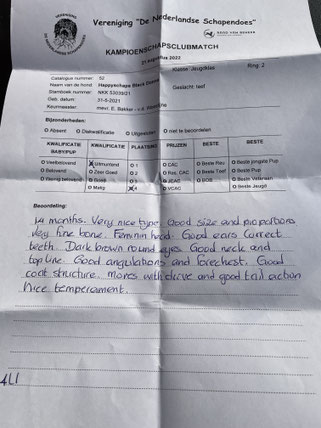 Vereniging "De Nederlandse Schapendoes"
VERENIGING
DE NEDERLANDSE SCHAPENDOES
KAMPIOENSCHAPSCLUBMATCH
21 augustus 2022
Catalogus nummer: 52 Klasse: Jeugdklas Ring: 2
Naam van de hond: Happyschaps Black
Stamboek nummer: NKK 53039/21 Geslacht: teef
Geb. datum: 31-5-2021
Keurmeester: mevr. E. Bakker - v.d.
Bijzonderheden:
O Absent O Diskwalificatie O Uitgesloten O niet te beoordelen
KWALIFICATIE BABY/PUP KWALIFICATIE PLAATSING PRIJZEN BESTE BESTE
O Veelbelovend Uitmuntend O 1 O CAC O Beste Reu O Beste jongste Pup
O Belovend O Zeer Goed O 2 O Res. CAC O Beste Teef O Beste Pup
O Weinig belovend O Goed O 3 JCAC O BOB O Beste Veteraan
O Matig 4 O VCAC O Beste Jeugd
Beoordeling:
14 months. Very nice type. Good size and proportions
very fine bone. Feminin head. Good ears Correct
teeth. Dark brown round eyes Good neck and
topline. Good angulations and forechest. Good
coat structure. moves with drive and good tail action
Nice temperament.